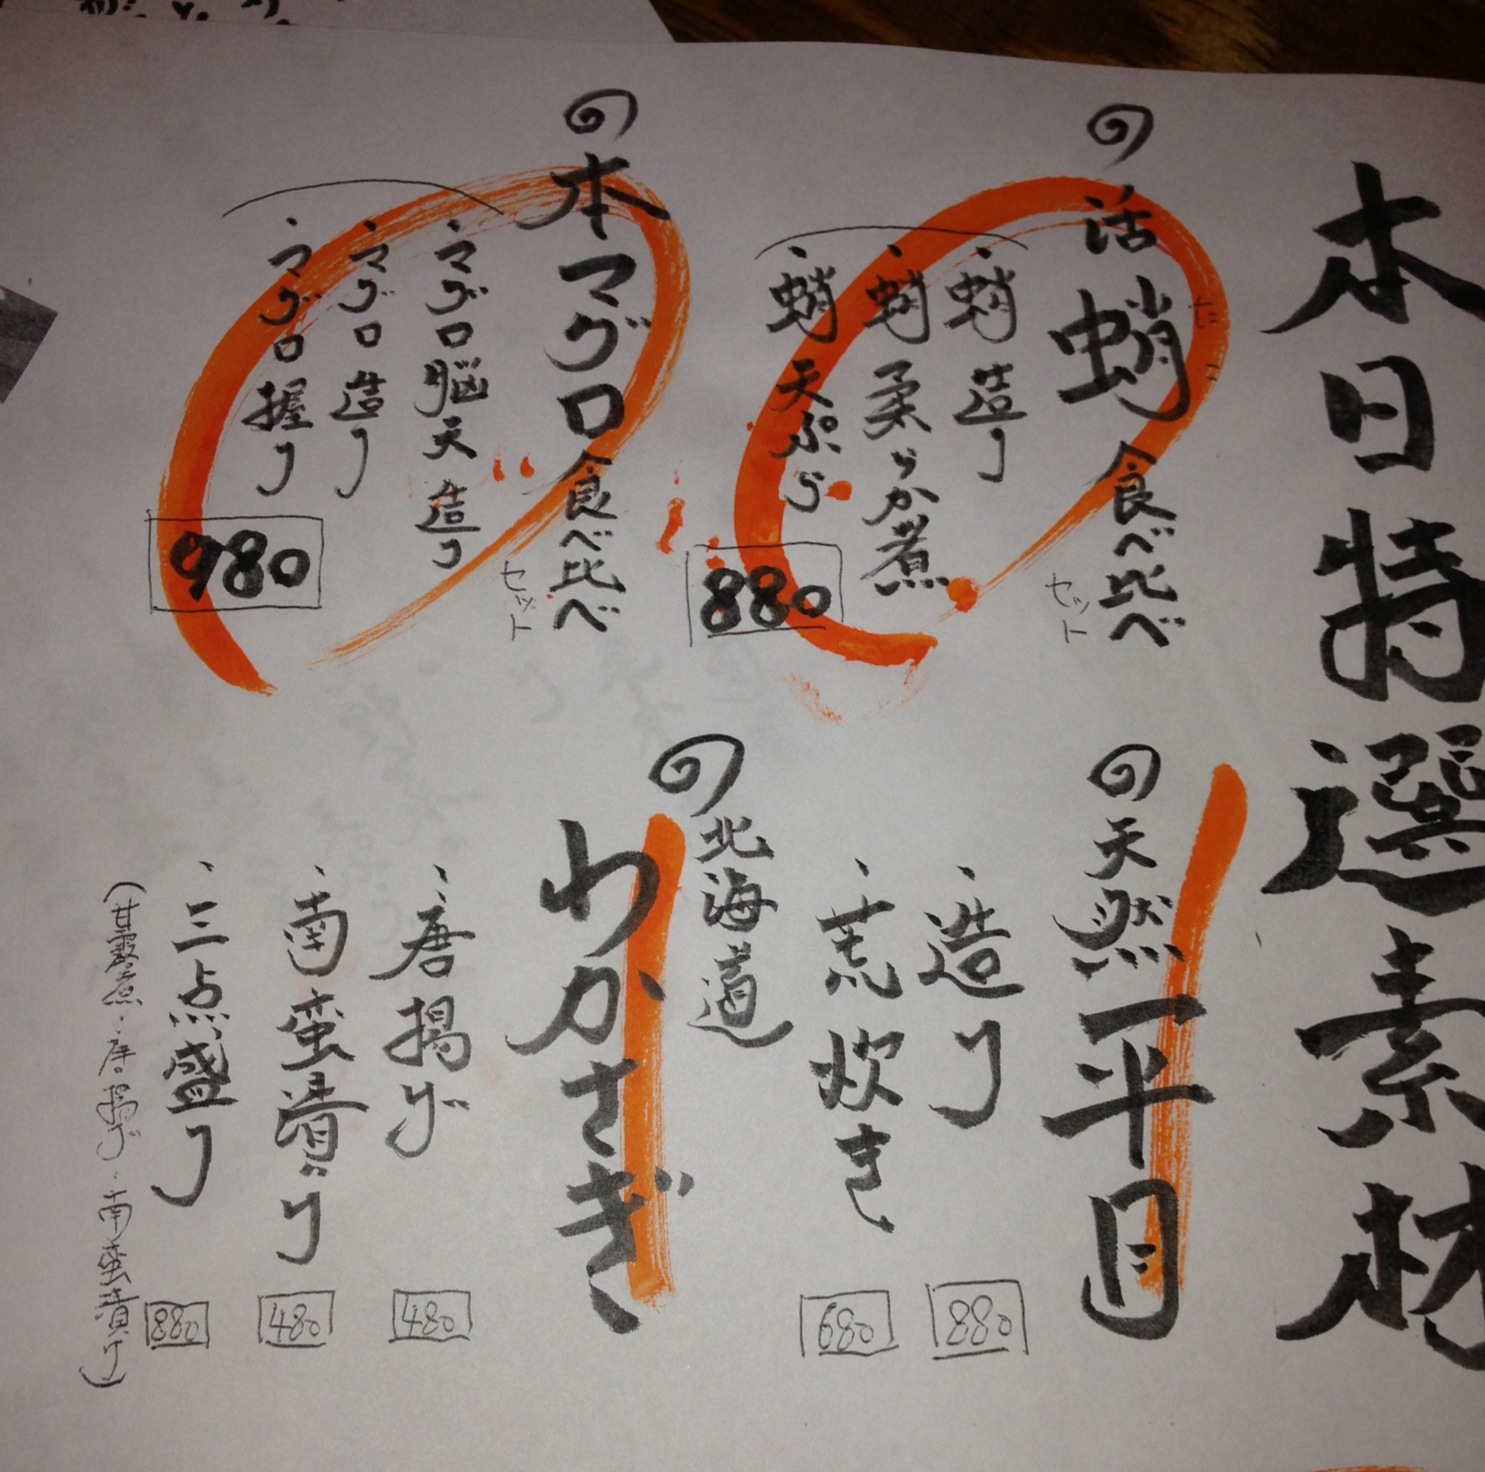 本日特選素材
活蛸食べ比べ
セット
・蛸造り
・蛸柔らか煮
・蛸天ぷら
880
本マグロ食べ比べ
セット
・マグロ脳天造り
・マグロ造り
・マグロ握り
980
天然平目
・造り
880
・荒炊き
680
北海道
わかさぎ
・唐揚げ
480
・南蛮漬け
480
・三点盛り
880
(甘露煮・唐揚げ・南蛮漬け)